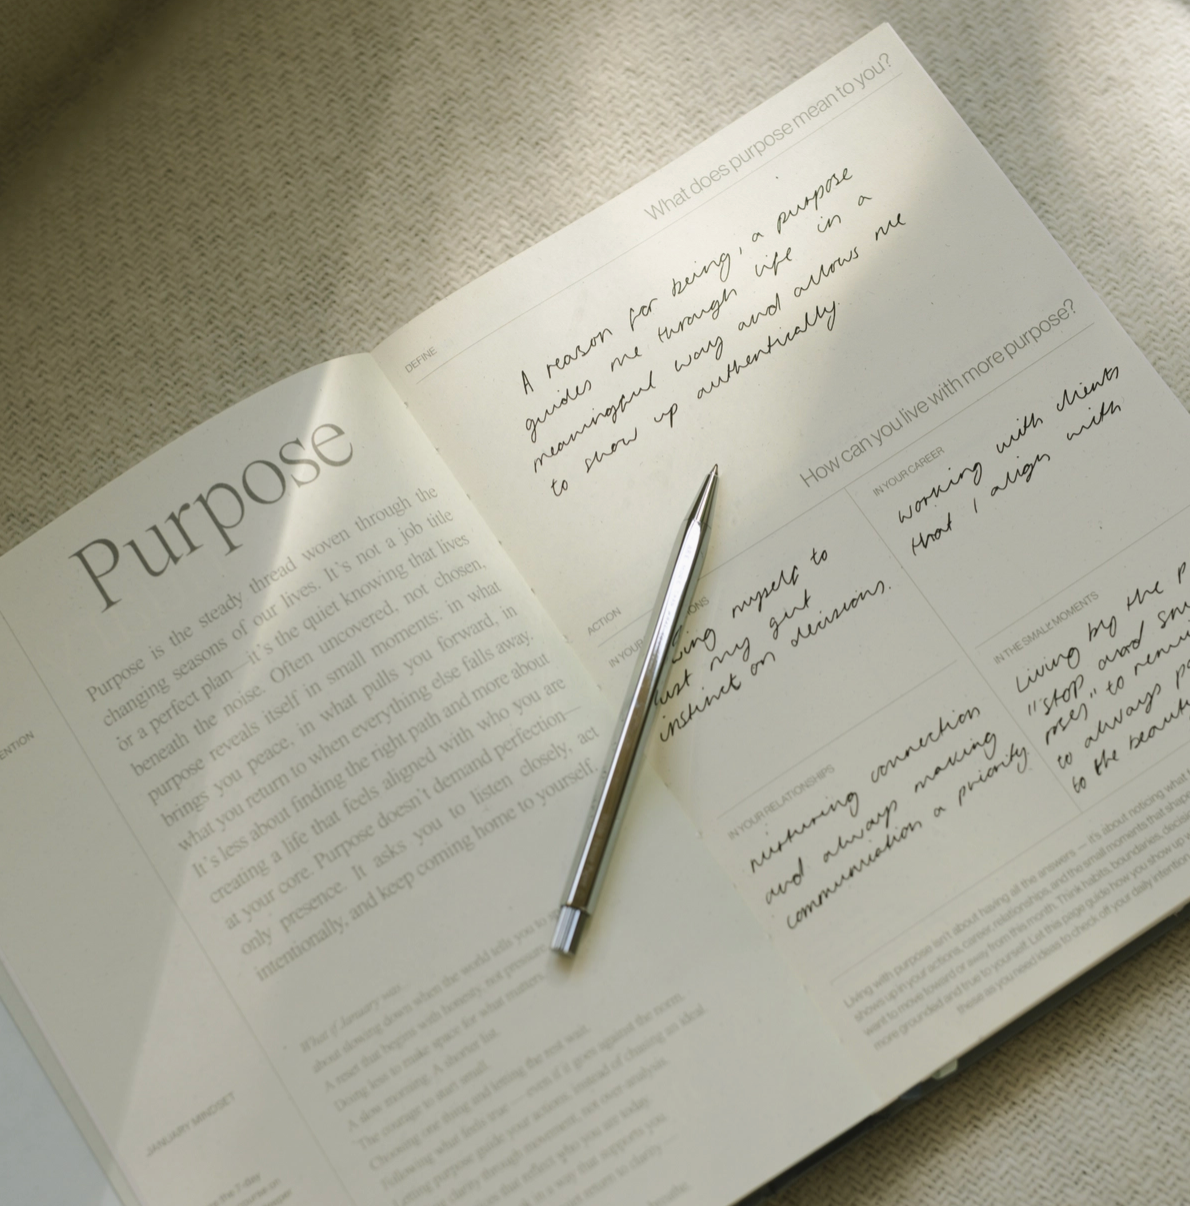 Purpose
Purpose is the steady thread woven through the
changing seasons of our lives. It's not a job title
or a perfect plan—it's the quiet knowing that lives
beneath the noise. Often uncovered, not chosen,
purpose reveals itself in small moments: in what
brings you peace, in what pulls you forward, in
what you return to when everything else falls away.
It's less about finding the right path and more about
creating a life that feels aligned with who you are
at your core. Purpose doesn't demand perfection—
only presence. It asks you to listen closely, act
intentionally, and keep coming home to yourself.
ENTION
What if January was
about slowing down when the world tells you to
A reset that begins with honesty, not pressure
Doing less to make space for what matters
A slow morning. A shorter list.
The courage to start small.
Choosing one thing and letting the rest wait.
Following what feels true — even if it goes against the norm.
Letting purpose guide your actions, instead of chasing an ideal.
clarity through movement, not over-analysis.
that reflect who you are today.
in a way that supports you.
JANUARY MINDSET
the 7-day
DEFINE
What does purpose mean to you?
A reason for being, a purpose
guides me through life in a
meaningful way and allows me
to show up authentically.
ACTION
How can you live with more purpose?
IN YOUR
myself to
my gut
instinct on decisions.
IN YOUR CAREER
working with clients
that I align with
IN YOUR RELATIONSHIPS
nurturing connection
and always making
communication a priority
IN THE SMALL MOMENTS
Living by the
"stop and
roses" to
to always
to the
Living with purpose isn't about having all the answers — it's about noticing what
shows up in your actions, career, relationships, and the small moments that shape
want to move toward or away from this month. Think habits, boundaries,
more grounded and true to yourself. Let this page guide how you show up
these as you need ideas to check off your daily intention